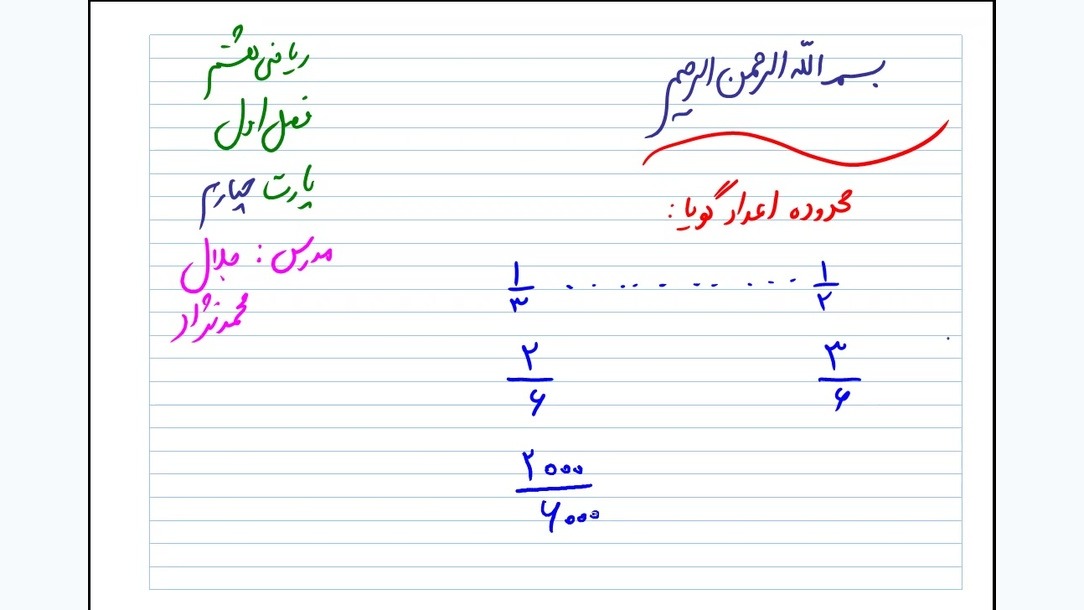 بسم الله الرحمن الرحیم
محدوده اعداد گویا:
۱/۲ .......... ۱/۳
۳/۶ ۲/۶
۲۰۰۰/۶۰۰۰
ریاضی هشتم
فصل اول
پارت چهارم
مدرس: جلال
محمدنژاد